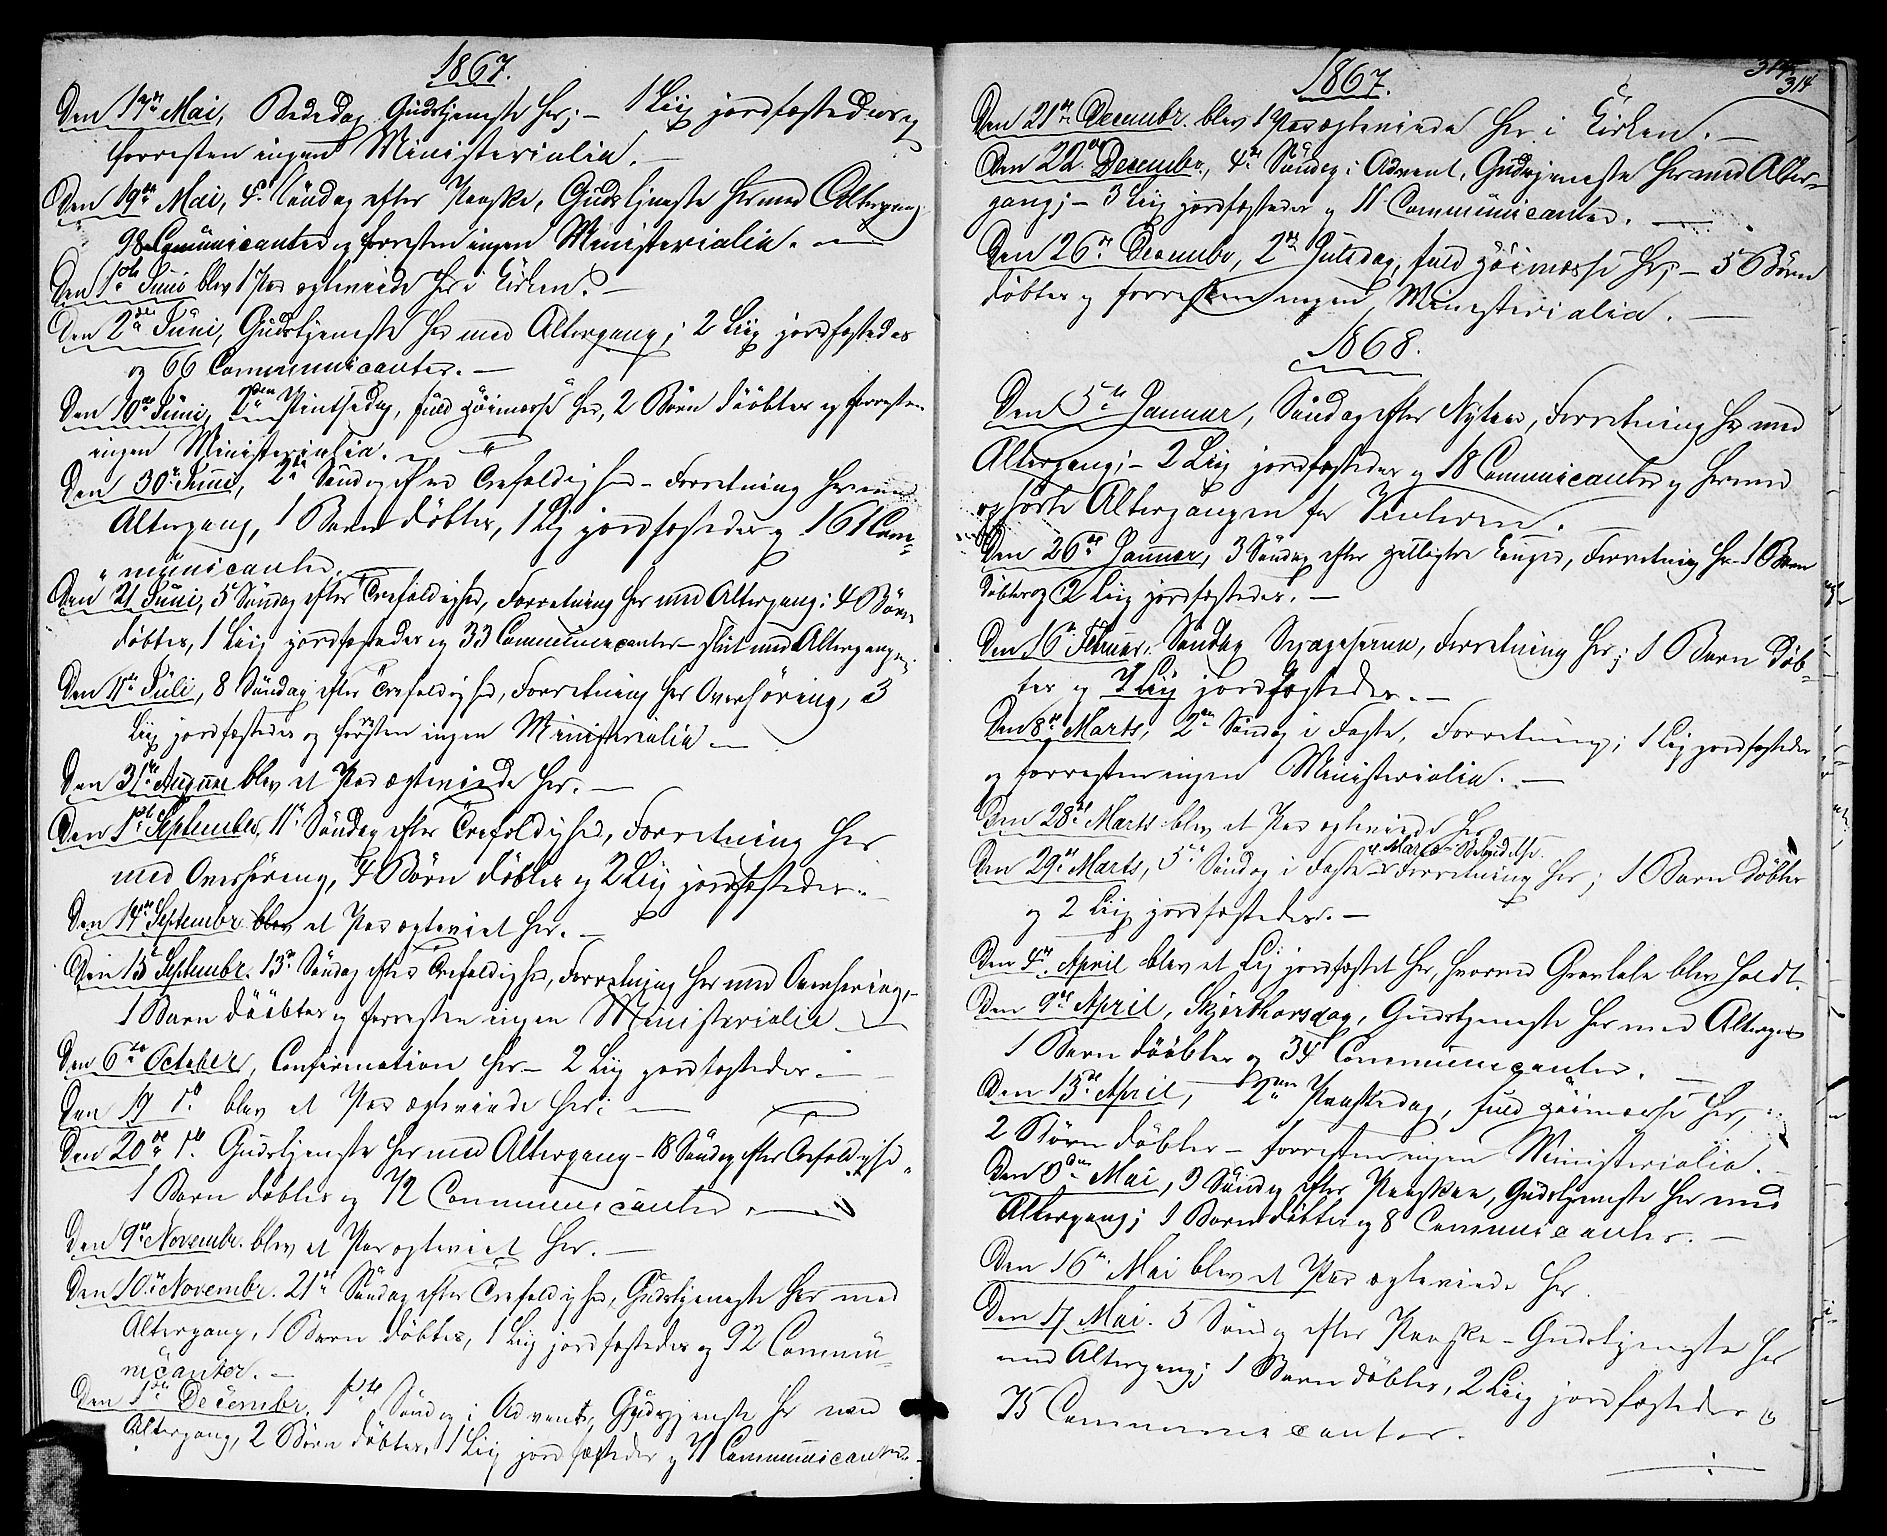 1867.
Den 17de Mai, Bededag Gudstjeneste her; - 1 Liig jordfæstedes og
forresten ingen Ministerialia. -
Den 19de Mai, 4de Søndag efter Paaske, Gudstjeneste her med Altergang
98 Communicanter og forresten ingen Ministerialia. -
Den 1ste Juni blev 1 Par ægteviede her i Kirken. -
Den 2den Juni, Gudstjeneste her med Altergang; 2 Liig jordfæstedes
og 66 Communicanter. -
Den 10de Juni, 2den Pintsedag, fuld Høimesse her, 2 Børn døbtes og forresten
ingen Ministerialia. -
Den 30te Juni, 2den Søndag efter Trefoldighed - Forretning her med
Altergang, 1 Barn døbtes, 1 Liig jordfæstedes og 161 Com-
municanter.
Den 21 Juni, 5 Søndag efter Trefoldighed, Forretning her med Altergang: 4 Børn
døbtes, 1 Liig jordfæstedes og 33 Communicanter - slut med Altergangen.
Den 11te Juli, 8 Søndag efter Trefoldighed, Forretning her Overhøring, 3
Liig jordfæstedes og forresten ingen Ministerialia -
Den 31te August blev et Par ægteviede her. -
Den 1ste September, 11te Søndag efter Trefoldighed, Forretning her
med Overhøring, 4 Børn døbtes og 2 Liig jordfæstedes. -
Den 14de Septembr. blev et Par ægteviet her. -
Den 15 Septembr. 13de Søndag efter Trefoldighed, Forretning her med Overhøring, -
1 Barn døbtes og forresten ingen Ministerialia -
Den 6te October, Confirmation her - 2 Liig jordfæstedes. -
Den 19 D. blev et Par ægteviede her: -
Den 20de D. Gudstjeneste her med Altergang - 18 Søndag efter Trefoldighed,
1 Barn døbtes og 72 Communicanter. -
Den 9de Novembr. blev et Par ægteviet her. -
Den 10de Novembr. 21de Søndag efter Trefoldighed, Gudstjeneste her med
Altergang, 1 Barn døbtes, 1 Liig jordfæstedes og 92 Commu-
nicanter. -
Den 1ste Decembr. 1ste Søndag i Advent, Gudstjeneste her med
Altergang, 2 Børn døbtes, 1 Liig jordfæstedes og 71 Communicanter. -
1867.
314
Den 21de Decembr. blev 1 Par ægteviede her i Kirken. -
Den 22de Decembr., 4de Søndag i Advent, Gudstjeneste her med Alter-
gang; - 3 Liig jordfæstedes og 11 Communicanter. -
Den 26de Decembr, 2den Juledag, fuld Høimesse her; - 5 Børn
døbtes og forresten ingen Ministerialia. -
1868.
Den 5te Januar, Søndag efter Nytaar, Forretning her med
Altergang; - 2 Liig jordfæstedes og 18 Communicanter og hermed
ophørte Altergangen for Vinteren. -
Den 26de Januar, 3 Søndag efter Helligtre Konger, Forretning her 1 Barn
døbtes og 2 Liig jordfæstedes. -
Den 16de Februar, Søndag Sexagesima, Forretning her; 1 Barn døb-
tes og 7 Liig jordfæstedes. -
Den 8de Marts, 2den Søndag i Faste, Forretning; 1 Liig jordfæstedes
og forresten ingen Ministerialia. -
Den 28de Marts blev et Par ægteviede her
Den 29de Marts, 5te Søndag i Faste og Mariæ Bebudelse. Forretning her; 1 Barn døbtes
og 2 Liig jordfæstedes. -
Den 4de April blev et Liig jordfæstet her, hvorved Gravtale blev holdt.
Den 9de April, Skjærthorsdag, Gudstjeneste her med Altergang
1 Barn døbtes og 34 Communicanter. -
Den 13de April, - 2den Paaskedag, fuld Høimesse her,
2 Børn døbtes - forresten ingen Ministerialia. -
Den 3den Mai, 3 Søndag efter Paaske, Gudstjeneste her med
Altergang; 1 Barn døbtes og 8 Communicanter. -
Den 16de Mai blev et Par ægteviede her.
Den 17 Mai. 5 Søndag efter Paaske - Gudstjeneste her
med Altergang; 1 Barn døbtes, 2 Liig jordfæstedes og
75 Communicanter.